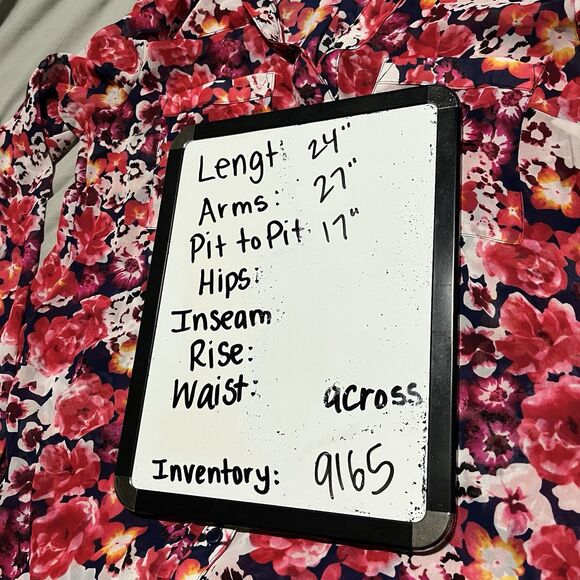 Lengt: 24"
Arms: 27"
Pit to Pit 17"
Hips:
Inseam
Rise:
Waist: across
Inventory: 9165